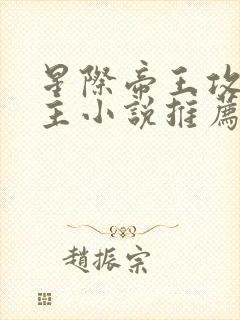 星際帝王攻
主小說推薦
趙振宗